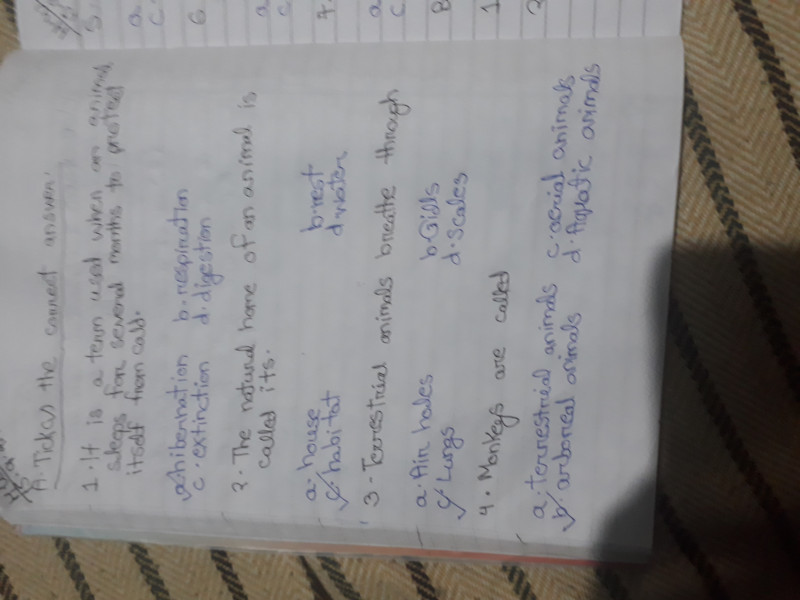 A. Tick as the correct answer.
1. It is a term used when an animal
sleeps for several months to protect
itself from cold.
a. hibernation b. respiration
c. extinction d. digestion
2. The natural home of an animal is
called its.
a. house b. nest
c. habitat d. water
3. Terrestrial animals breathe through
a. Air holes b. Gills
c. Lungs d. Scales
4. Monkeys are called
a. terrestrial animals c. aerial animals
b. arboreal animals d. Aquatic animals
5.
a.
c.
6.
a.
c
7.
a.
c.
8
1
2